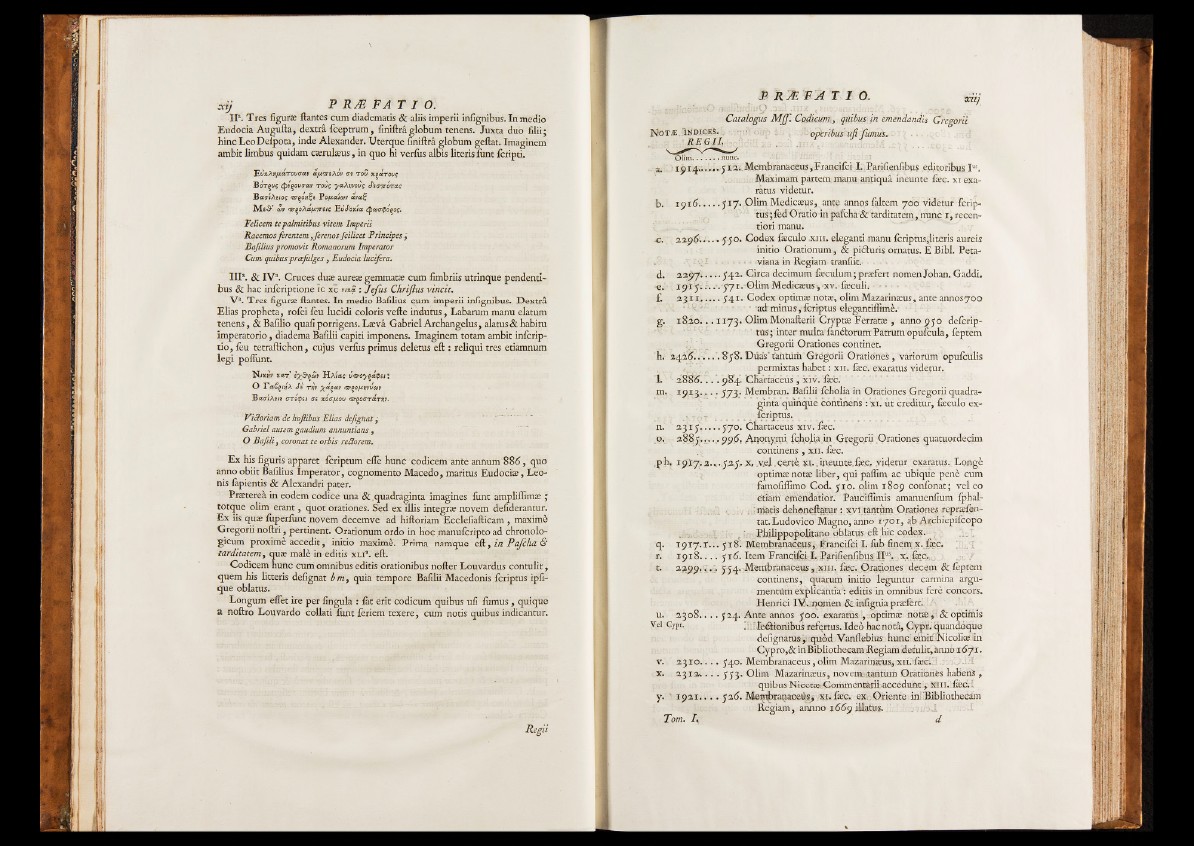 xij PRÆFATIO.
IIª. Tres figuræ ſtantes cum diadematis & aliis imperii inſignibus. In medio
Eudocia Auguſta, dextrâ ſceptrum, ſiniſtrâ globum tenens. Juxta duo filii;
hinc Leo Deſpota, inde Alexander. Uterque ſiniſtrâ globum geſtat. Imaginem
ambit limbus quidam cærulæus, in quo hi verſus albis literis ſunt ſcripti.
Felicem te palmitibus vitem Imperii
Racemos ferentem, ſerenos ſcilicet Principes,
Baſilius promovit Romanorum Imperator
Cum quibus præfulges, Eudocia lucifera.
IIIª. & IVª. Cruces duæ aureæ gemmatæ cum fimbriis utrinque pendenti-
bus & hac inſcriptione ἰς χς νικᾷ : Jeſus Chriſtus vincit.
Vª. Tres figuræ ſtantes. In medio Baſilius cum imperii inſignibus. Dextrâ
Elias propheta, roſei ſeu lucidi coloris veſte indutus, Labarum manu elatum
tenens, & Baſilio quaſi porrigens. Lævâ Gabriel Archangelus, alatus & habitu
imperatorio, diadema Baſilii capiti imponens. Imaginem totam ambit inſcrip-
tio, ſeu tetraſtichon, cujus verſus primus deletus eſt : reliqui tres etiamnum
legi poſſunt.
Victoriam de hoſtibus Elias deſignat,
Gabriel autem gaudium annuntians,
O Baſili, coronat te orbis rectorem.
Ex his figuris apparet ſcriptum eſſe hunc codicem ante annum 886, quo
anno obiit Baſilius Imperator, cognomento Macedo, maritus Eudociæ, Leo-
nis ſapientis & Alexandri pater.
Præterea in eodem codice una & quadraginta imagines ſunt ampliſſimæ;
totque olim erant, quot orationes. Sed ex illis integræ novem deſiderantur.
Ex iis quæ ſuperſunt novem decemve ad hiſtoriam Eccleſiaſticam, maximè
Gregorii noſtri, pertinent. Orationum ordo in hoc manuſcripto ad chronolo-
gicum proximè accedit, initio maximè. Prima namque eſt, in Paſcha &
tarditatem, quæ malè in editis XLIª. eſt.
Codicem hunc cum omnibus editis orationibus noſter Louvardus contulit,
quem his litteris deſignat b m, quia tempore Baſilii Macedonis ſcriptus ipſi-
que oblatus.
Longum eſſet ire per ſingula : ſat erit codicum quibus uſi ſumus, quique
a noſtro Louvardo collati ſunt ſeriem texere, cum notis quibus indicantur.
Regii
PRÆFATIO. xiij
Catalogus Mſſ. Codicum, quibus in emendandis Gregorii
operibus uſi ſumus.
NOTÆ INDICES.
REGII.
Olim....... nunc.
a. 1914..... 512. Membranaceus, Franciſci I. Pariſienſibus editoribus Iᵘˢ.
Maximam partem manu antiquâ ineunte ſæc. XI exa-
ratus videtur.
b. 1916..... 517. Olim Medicæus, ante annos ſaltem 700 videtur ſcrip-
tus; ſed Oratio in paſcha & tarditatem, nunc 1, recen-
tiori manu.
c. 2296..... 550. Codex ſæculo XIII. eleganti manu ſcriptus, literis aureis
initio Orationum, & picturis ornatus. E Bibl. Peta-
viana in Regiam tranſiit.
d. 2297..... 542. Circa decimum ſæculum; præfert nomen Johan. Gaddi.
e. 1915..... 571. Olim Medicæus, XV. ſæculi.
f. 2311..... 541. Codex optimæ notæ, olim Mazarinæus, ante annos 700
ad minus, ſcriptus elegantiſſimè.
g. 1820... 1173. Olim Monaſterii Cryptæ Ferratæ, anno 950 deſcrip-
tus; inter multa ſanctorum Patrum opuſcula, ſeptem
Gregorii Orationes continet.
h. 2426...... 858. Duas tantùm Gregorii Orationes, variorum opuſculis
permixtas habet : XII. ſæc. exaratus videtur.
l. 2886.... 984. Chartaceus, XIV. ſæc.
m. 1913.... 573. Membran. Baſilii ſcholia in Orationes Gregorii quadra-
ginta quinque continens : XI. ut creditur, ſæculo ex-
ſcriptus.
n. 2315..... 570. Chartaceus XIV. ſæc.
o. 2885..... 996. Anonymi ſcholia in Gregorii Orationes quatuordecim
continens, XII. ſæc.
ph. 1917.2... 525. X. vel certè XI. ineunte ſæc. videtur exaratus. Longè
optimæ notæ liber, qui paſſim ac ubique penè cum
famoſiſſimo Cod. 510. olim 1809 conſonat; vel eo
etiam emendatior. Pauciſſimis amanuenſium ſphal-
matis dehoneſtatur : XVI tantùm Orationes repræſen-
tat. Ludovico Magno, anno 1701, ab Archiepiſcopo
Philippopolitano oblatus eſt hic codex.
q. 1917.1... 518. Membranaceus, Franciſci I. ſub finem X. ſæc.
r. 1918.... 516. Item Franciſci I. Pariſienſibus IIᵘˢ. X. ſæc.
t. 2299.... 554. Membranaceus, XIII. ſæc. Orationes decem & ſeptem
continens, quarum initio leguntur carmina argu-
mentum explicantia : editis in omnibus ferè concors.
Henrici IV. nomen & inſignia præfert.
u. 2308.... 524. Ante annos 500. exaratus, optimæ notæ, & optimis
Vel Cypr. lectionibus refertus. Ideò hac notâ, Cypr. quandoque
deſignatus, quòd Vanſlebius hunc emit Nicoſiæ in
Cypro, & in Bibliothecam Regiam detulit, anno 1671.
v. 2310.... 540. Membranaceus, olim Mazarinæus, XII. ſæc.
x. 2312.... 553. Olim Mazarinæus, novem tantum Orationes habens,
quibus Nicetæ Commentarii accedunt, XIII. ſæc.
y. 1921.... 526. Membranaceus, XI. ſæc. ex Oriente in Bibliothecam
Regiam, annno 1669 illatus.
Tom. I. d